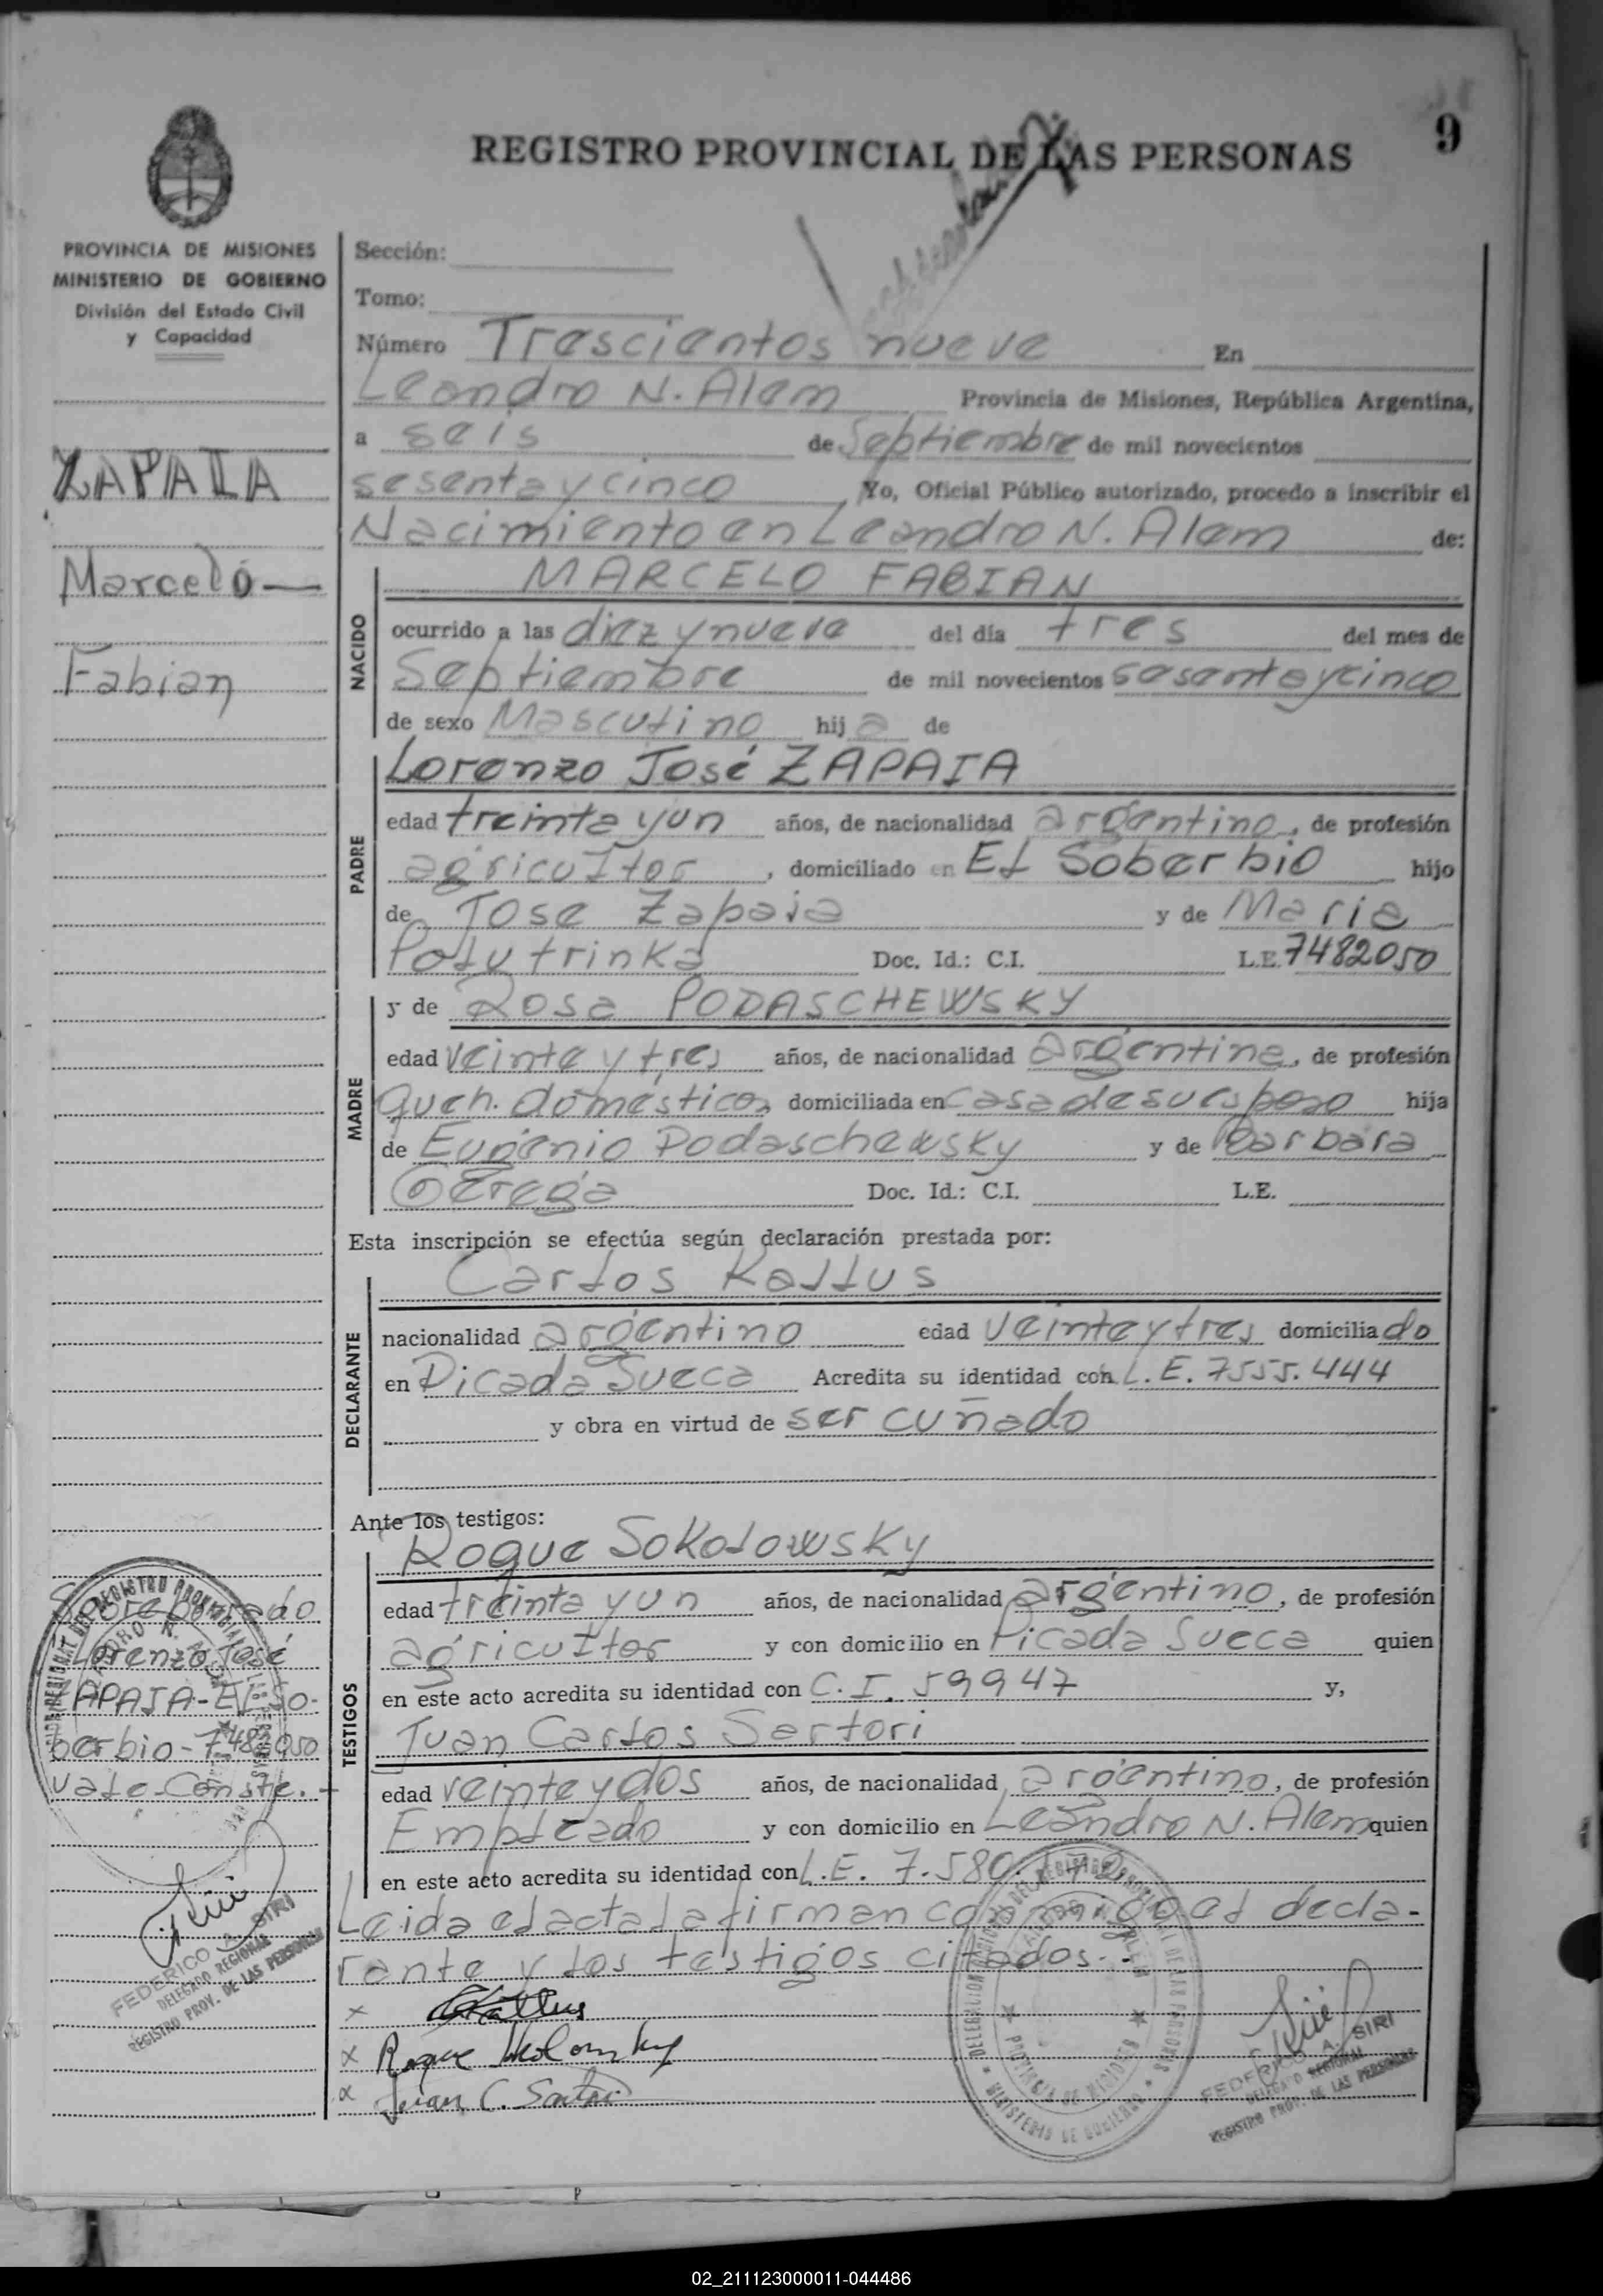 9
REGISTRO PROVINCIAL DE LAS PERSONAS
PROVINCIA DE MISIONES
MINISTERIO DE GOBIERNO
División del Estado Civil
y Capacidad
ZAPAIA
Marcelo —
Fabian
Sección:
Tomo:
Número Trescientos nueve En
Leandro N. Alem Provincia de Misiones, República Argentina,
a seis de Septiembre de mil novecientos
sesenta y cinco , Yo, Oficial Público autorizado, procedo a inscribir el
Nacimiento en Leandro N. Alem de:
NACIDO
MARCELO FABIAN
ocurrido a las diez y nueve del día tres del mes de
Septiembre de mil novecientos sesenta y cinco
de sexo Masculino hij a de
PADRE
Lorenzo José ZAPAIA
edad treinta y un años, de nacionalidad argentino, de profesión
agricultor, domiciliado en El Soberbio hijo
de Jose Zapaia y de Maria
Polutrinka Doc. Id.: C.I. L.E. 7482050
MADRE
y de Rosa PODASCHEWSKY
edad veinte y tres años, de nacionalidad argentina, de profesión
queh. domesticos, domiciliada en casa de su esposo hija
de Eugenio Podaschewsky y de Barbara
Doc. Id.: C.I. L.E.
Esta inscripción se efectúa según declaración prestada por:
DECLARANTE
Carlos Kallus
nacionalidad argentino edad veinte y tres domiciliado
en Picada Sueca Acredita su identidad con L.E. 7555.444
y obra en virtud de ser cuñado
Ante los testigos:
TESTIGOS
Roque Sokolowsky
edad treinta y un años, de nacionalidad argentino, de profesión
agricultor y con domicilio en Picada Sueca quien
en este acto acredita su identidad con C.I. 59947 y,
Juan Carlos Sartori
edad veinte y dos años, de nacionalidad argentino, de profesión
Empleado y con domicilio en Leandro N. Alem quien
en este acto acredita su identidad con L.E. 7.580.
Leida el acta la firman conmigo el decla-
rante y los testigos citados.-
x Kallus
x Roque Sokolowsky
x Juan C. Sartori
Sobreborrado
Lorenzo José
ZAPAIA - El So-
berbio - 7482050
vale Conste. -
FEDERICO A. SIRI
DELEGADO REGIONAL
REGISTRO PROV. DE LAS PERSONAS
FEDERICO A. SIRI
DELEGADO REGIONAL
REGISTRO PROV. DE LAS PERSONAS
PROVINCIA DE MISIONES
MINISTERIO DE GOBIERNO
02_211123000011-044486